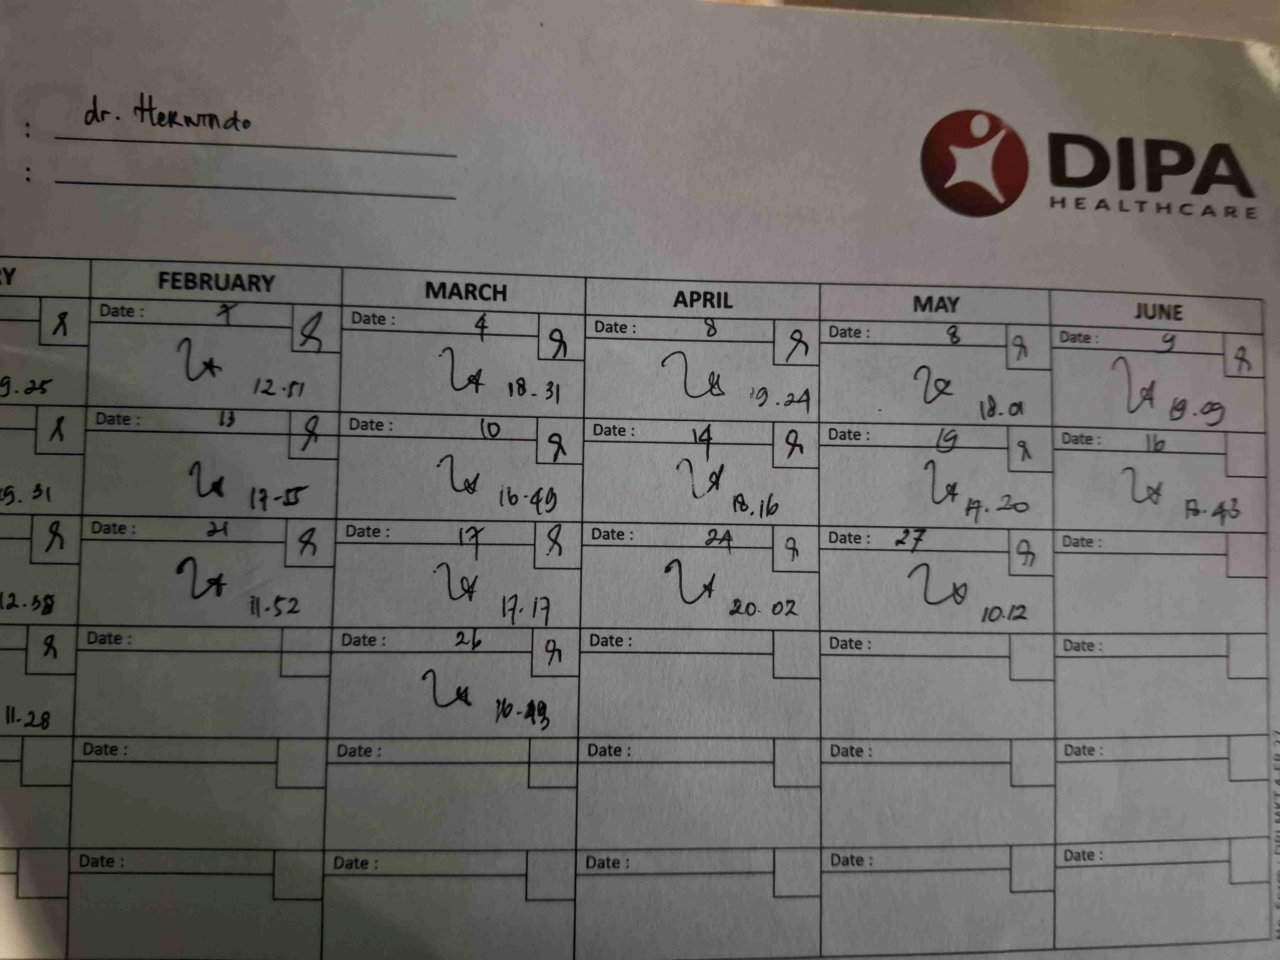 : dr. Herwindo
:
DIPA
HEALTHCARE
RY FEBRUARY MARCH APRIL MAY JUNE
Date : 7 Date : 4 Date : 8 Date : 8 Date : 9
9.25 12.51 18.31 19.24 18.01 19.09
Date : 13 Date : 10 Date : 14 Date : 19 Date : 16
15.31 17-55 16-49 18.16 17.20 18.43
Date : 21 Date : 17 Date : 24 Date : 27 Date :
12.38 11-52 17.17 20.02 10.12
Date : Date : 26 Date : Date : Date :
11.28 16-49
Date : Date : Date : Date : Date :
Date : Date : Date : Date : Date :